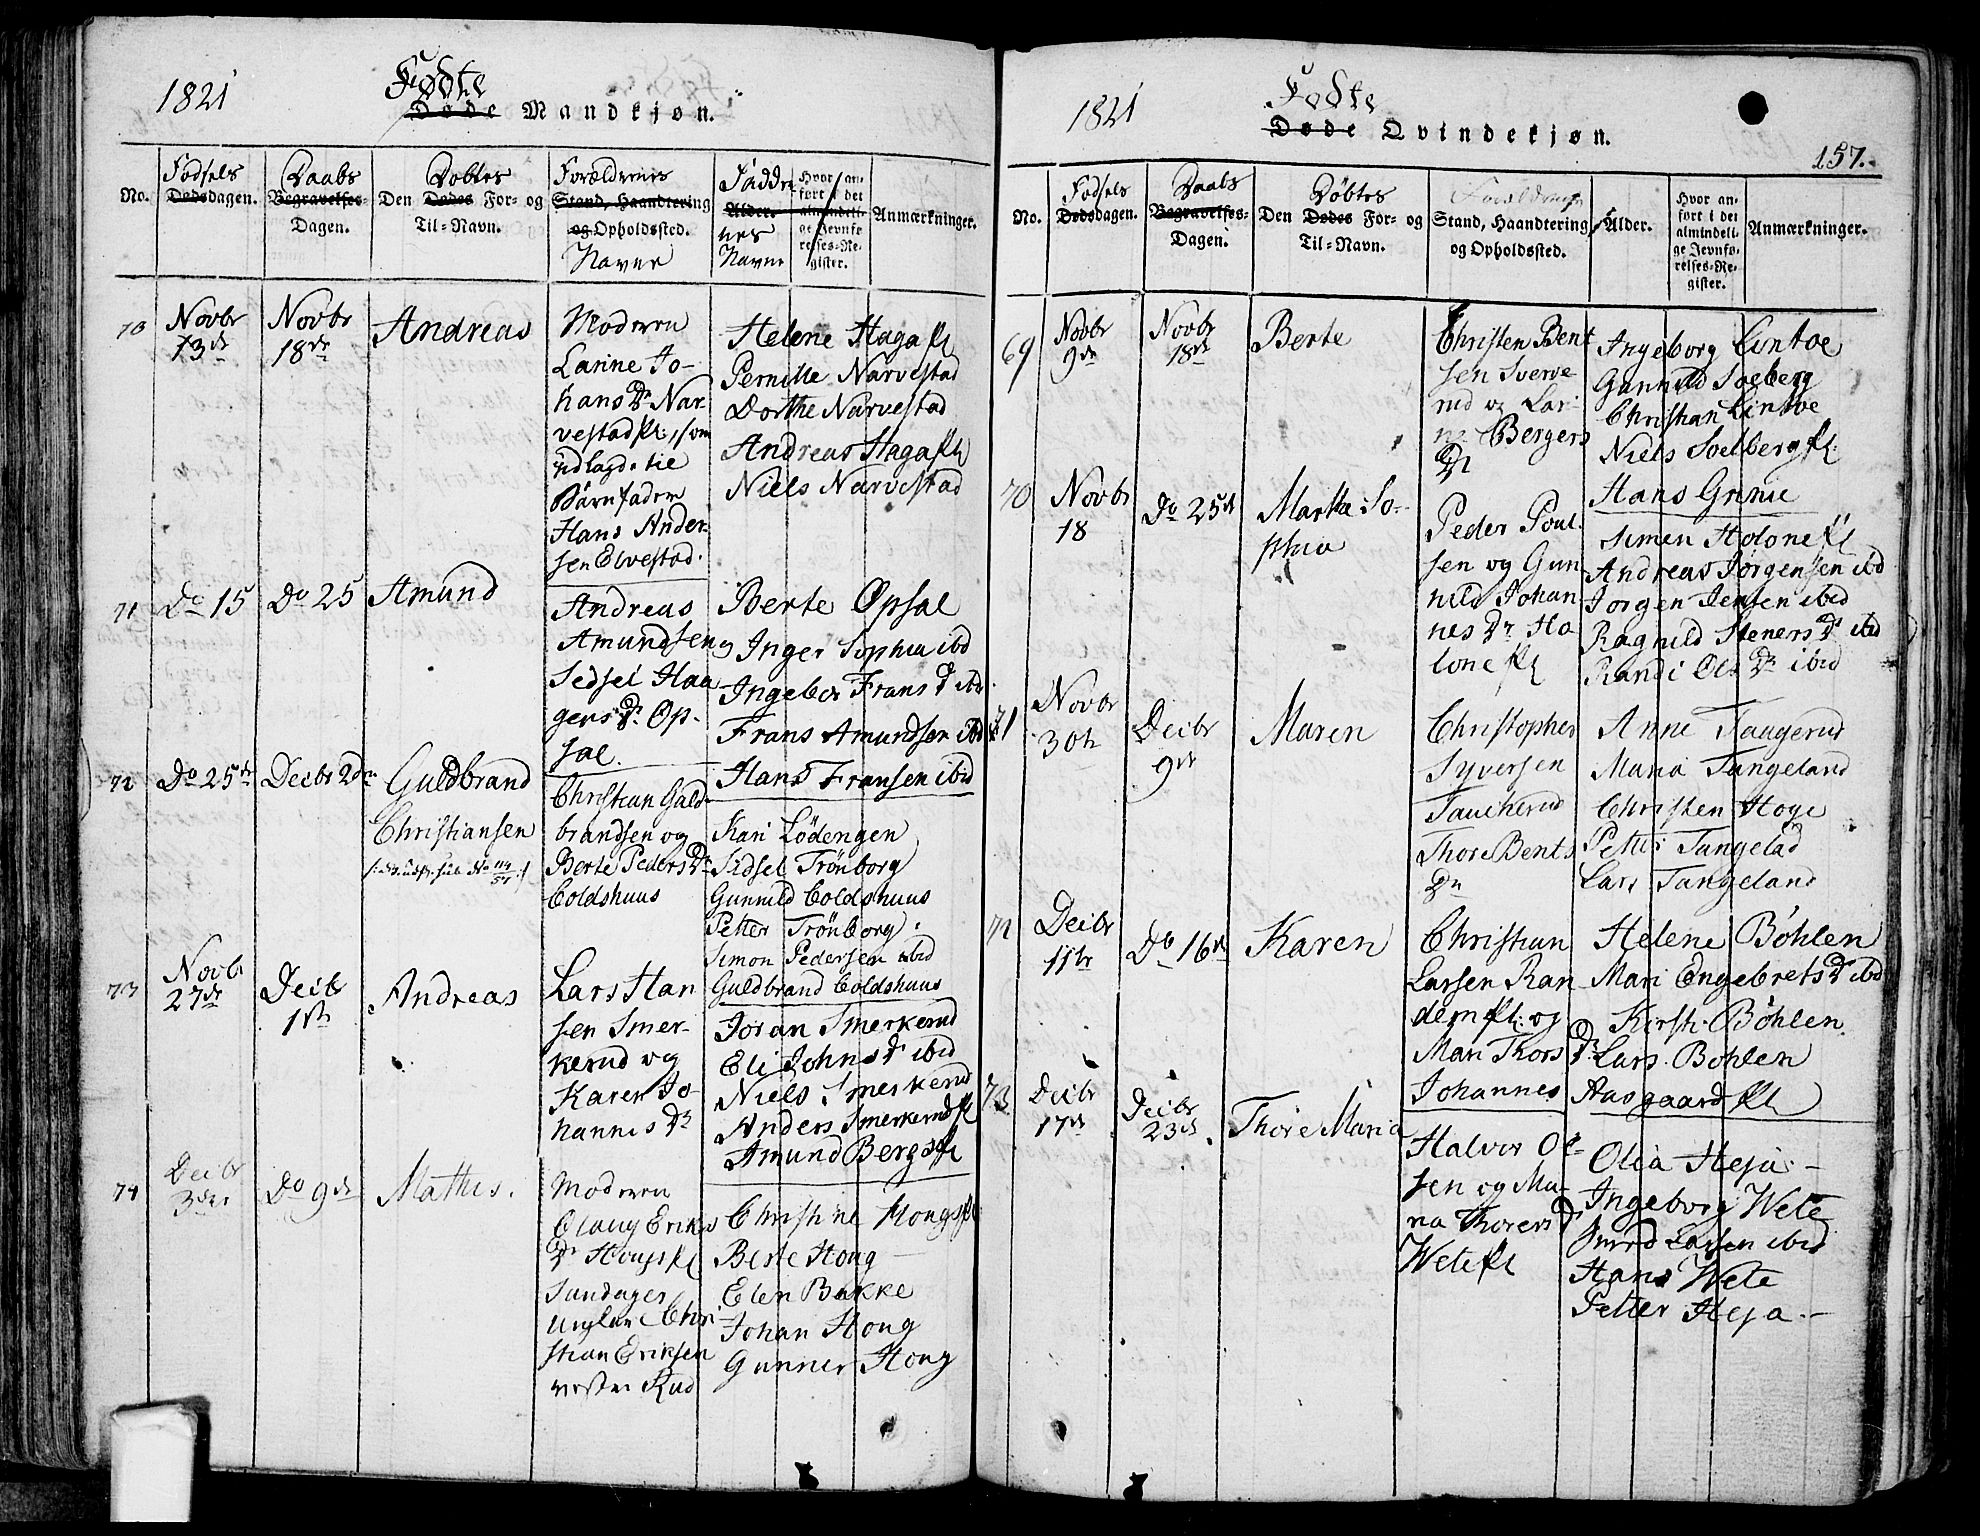 1821
Fødte
Døde Mandkjøn.
No.
Fødsels
Dødsdagen.
Daabs
Begravelses-
Dagen.
Døbtes
Den Dødes For- og
Til-Navn.
Forældrenes
Stand, Haandtering
og Opholdssted.
Navne
Fadder
Alder.
nes
Navne
Hvor an-
ført i det
almindeli-
ge Jevnfø-
relses-Re-
gister.
Anmærkninger.
70
Novbr
13de
Novbr
18de
Andreas
Moderen
Larine Jo-
hans Dr Nar
vestad
udlagde til
Barnfader
Hans Ander-
sen Elvestad.
Helene Haga
Pernille Narvestad
Dorthe Narvestad
Andreas Haga
Niels Narvestad
71
Do 15
Do 25
Amund
Andreas
Amundsen og
Sidsel Haa
gens Dr Op-
sal.
Berte Opsal
Inger Sophia ibd
Ingebor Frans D ibd
Frans Amundsen ibd
Hans Fransen ibid
72
Do 25de
Decbr 2den
Guldbrand
Christiansen
Christian Guld-
brandsen og
Berte Peders Dr
Coldshuus
Kari Lödengen
Sidsel Trönborg
Gunnild Coldshuus
Petter Trönborg.
Simon Pedersen ibid
Guldbrand Coldshuus
73
Novbr
27de
Decbr
1ste
Andreas
Lars Han
sen Smer-
kerud og
Karen Jo-
hannis Dr
Joran Smerkerud
Eli Johns Dr ibid
Niels Smerkerud
Anders Smerkerud
Amund Berg
74
Decbr
3de
Do 9de
Mathis.
Moderen
Olaug Eriks
Dr
Chri
stian Eriksen
Rud
Christine
Berte Hong
Elen Bakke
Johan Hong
Gunner Hong
1821
Fødte
Døde Qvindekjøn.
157.
No.
Fødsels
Dødsdagen.
Daabs
Begravelses-
Dagen.
Døbtes
Den Dødes For- og
Til-Navn.
Forældrenes
Stand, Haandtering
og Opholdssted.
Alder.
Hvor an-
ført i det
almindeli-
ge Jevnfø-
relses-Re-
gister.
Anmærkninger.
69
Novbr
9de
Novbr
18de
Berte
Christen Bent
sen Sverve
rud og Lari
ne Bergers
Dr
Ingeborg Lintoe
Gunnild Soeberg
Christian Lintoe
Niels Soelberg
Hans Grime
70
Novbr
18
Do 25de
Marthe So-
phia
Peder Poul
sen og Gun
nild Johan
nes Dr Ho
lone
Simen Holone
Andreas Jörgensen ibd
Jorgen Jensen ibid
Ragnild Steners Dr ibid
Randi Ols Dr ibid
71
Novbr
30te
Decbr
9de
Maren
Christopher
Syversen
Taucherud
Thore Bents
Dr
Anne Taugerud
Maria Tangeland
Christen Hoge
Petter Tangelad
Lars Tangeland
72
Decbr
11te
Do 16de
Karen
Christian
Larsen Ran
dem og
Mari Thors Dr
Helene Böhlen
Mari Engebrets Dr ibd
Kirsti Böhlen
Lars Bohlen
Johannes Aasgaard
73
Decbr
17de
Decbr
23de
Thore Maria
Halvor Ol-
sen og Ma-
ria Thorers Dr
Wete
Olea Heja
Ingeborg Wete
Larsen ibid
Hans Wete
Petter Heja